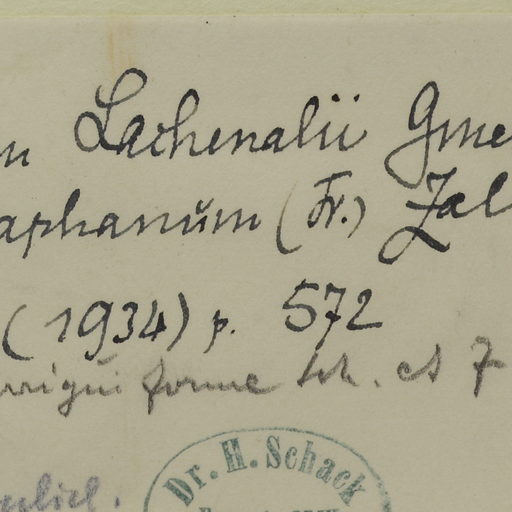 n Lachenalii Gme
aphanum (Fr.) Zal
(1934) p. 572
forme
Dr. H. Schack